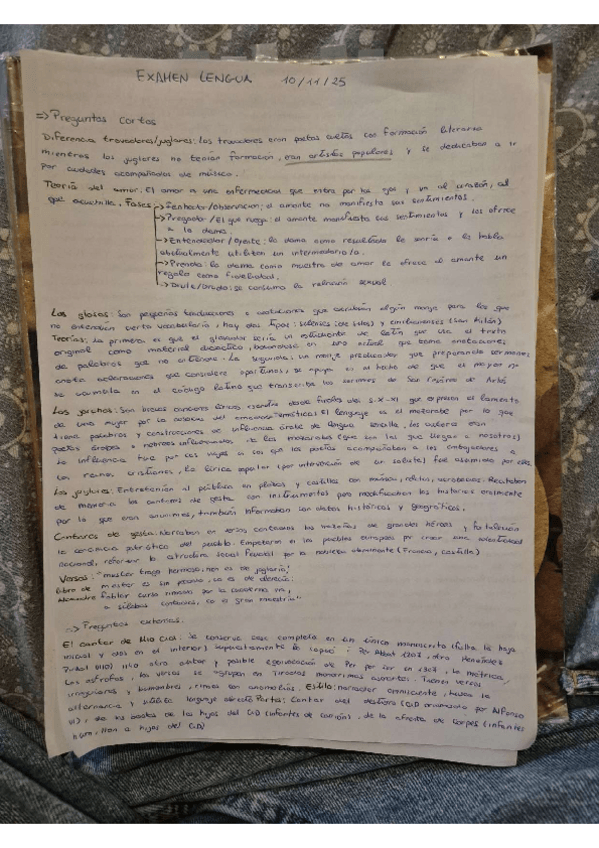 EXAMEN LENGUA 10/11/25
=> Preguntas cortas
Diferencia trovadores/juglares: los trovadores eran poetas cultos con formación literaria
mientras los juglares no tenían formación, eran artistas populares y se dedicaban a ir
por ciudades acompañados de música.
Teoría del amor: El amor es una enfermedad que entra por los ojos y va al corazón, al
que acuchilla. Fases
Fenhedor/observación: el amante no manifiesta sus sentimientos.
Pregador/El que ruega: el amante manifiesta sus sentimientos y los ofrece
a la dama.
Entendedor/Oyente: la dama como resultado le sonríe o le habla
habitualmente utilizan un intermediario/a.
Prenda: la dama como muestra de amor le ofrece al amante un
regalo como fidelidad.
Drule/Drudo: se consuma la relación sexual.
Las glosas: Son pequeñas traducciones o anotaciones que escribían algún monje para los que
no entendían cierto vocabulario, hay dos tipos: silenses (de silos) y emilianenses (San Millán)
Teorías: La primera es que el glosador sería un estudiante de latín que usa el texto
original como material didáctico, basándose en uno actual que toma anotaciones
de palabras que no entiende. La segunda: un monje predicador que preparando sermones
anota aclaraciones que considere oportunas, se apoya en el hecho de que el mayor nº
se acumula en el código latino que transcribe los sermones de San Cesáreo de Arlés
Las jarchas: Son breves canciones líricas, escritas desde finales del s.X-XI que expresan el lamento
de una mujer por la ausencia del enamorado (temática) El lenguaje es el mozárabe por lo que
tiene palabras y construcciones de influencia árabe de lengua sencilla, los autores eran
poetas árabes o hebreos influenciados de los mozárabes (que son las que llegan a nosotros)
La influencia fue por los viajes a los que los poetas acompañaban a los embajadores a
los reinos cristianos, la lírica popular (por intercesión de Alfonso) fue asumida por ella.
Los juglares: Entretenían al público en plazas y castillos con música, relatos, acrobacias. Recitaban
de memoria los cantares de gesta con instrumentos pero modificaban las historias oralmente
por lo que eran anónimos, también informaban con datos históricos y geográficos.
Cantares de gesta: Narraban en versos contando las hazañas de grandes héroes y fortalecían
la conciencia patriótica del pueblo. Empezaron en los pueblos europeos por crear una identidad
nacional, reforzar la estructura social feudal por la nobleza dominante (Francia, Castilla)
Versos: "mester traigo fermoso, non es de joglaría,
libro de mester es sin pecado, ca es de clerecía:
Alexandre fablar curso rimado por la cuaderna vía,
a sílabas contadas, ca es gran maestría"
=> Preguntas extensas.
El cantar de Mio Cid: Se conserva casi completo en un único manuscrito (falta la hoja
inicial y dos en el interior) supuestamente lo copió: Per Abbat 1207, otro Menéndez
Pidal 1110/1140 otro autor y posible equivocación de Per por ser en 1307, la métrica,
las estrofas, los versos se agrupan en Tiradas monorrimas asonantes. Tienen versos
irregulares y bimembres, rimas son asonantes. Estilo: narrador omnisciente, hasta la
alternancia y lenguaje directo Partes: Cantar del destierro (CID desterrado por Alfonso
VI), de las bodas de las hijas del CID (infantes de carrión), de la afrenta de Corpes (infantes
a hijas del Cid)